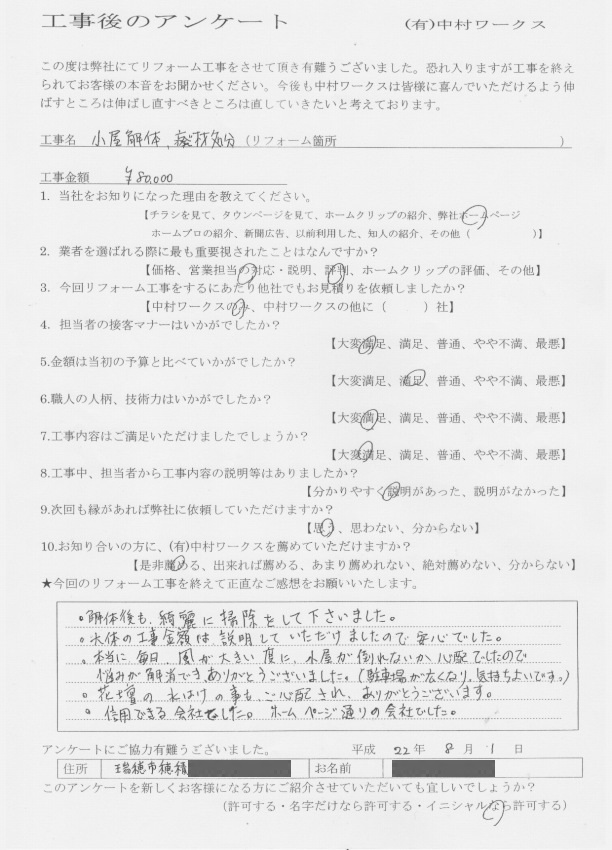 工事後のアンケート (有)中村ワークス
この度は弊社にてリフォーム工事をさせて頂き有難うございました。恐れ入りますが工事を終え
られてお客様の本音をお聞かせください。今後も中村ワークスは皆様に喜んでいただけるよう伸
ばすところは伸ばし直すべきところは直していきたいと考えております。
工事名 小屋解体、廃材処分 (リフォーム箇所 )
工事金額 ¥80,000
1. 当社をお知りになった理由を教えてください。
【チラシを見て、タウンページを見て、ホームクリップの紹介、弊社ホームページ
ホームプロの紹介、新聞広告、以前利用した、知人の紹介、その他( )】
2. 業者を選ばれる際に最も重要視されたことはなんですか?
【価格、営業担当の対応・説明、評判、ホームクリップの評価、その他】
3. 今回リフォーム工事をするにあたり他社でもお見積りを依頼しましたか?
【中村ワークスのみ、中村ワークスの他に( )社】
4. 担当者の接客マナーはいかがでしたか?
【大変満足、満足、普通、やや不満、最悪】
5.金額は当初の予算と比べていかがでしたか?
【大変満足、満足、普通、やや不満、最悪】
6.職人の人柄、技術力はいかがでしたか?
【大変満足、満足、普通、やや不満、最悪】
7.工事内容はご満足いただけましたでしょうか?
【大変満足、満足、普通、やや不満、最悪】
8.工事中、担当者から工事内容の説明等はありましたか?
【分かりやすく説明があった、説明がなかった】
9.次回も縁があれば弊社に依頼していただけますか?
【思う、思わない、分からない】
10.お知り合いの方に、(有)中村ワークスを薦めていただけますか?
【是非薦める、出来れば薦める、あまり薦めれない、絶対薦めない、分からない】
★今回のリフォーム工事を終えて正直なご感想をお願いいたします。
。解体後も、綺麗に掃除をして下さいました。
。大体の工事金額は説明していただけましたので安心でした。
。本当に、毎日、風が大きい度に、小屋が倒れないか心配でしたので
悩みが解消でき、ありがとうございました。(駐車場が広くなり、気持ちよいです。)
。花壇の水はけの事も、ご心配され、ありがとうございます。
。信用できる会社でした。 ホームページ通りの会社でした。
アンケートにご協力有難うございました。 平成 22 年 8 月 1 日
住所 瑞穂市穂積 お名前
このアンケートを新しくお客様になる方にご紹介させていただいても宜しいでしょうか?
(許可する・名字だけなら許可する・イニシャルなら許可する)